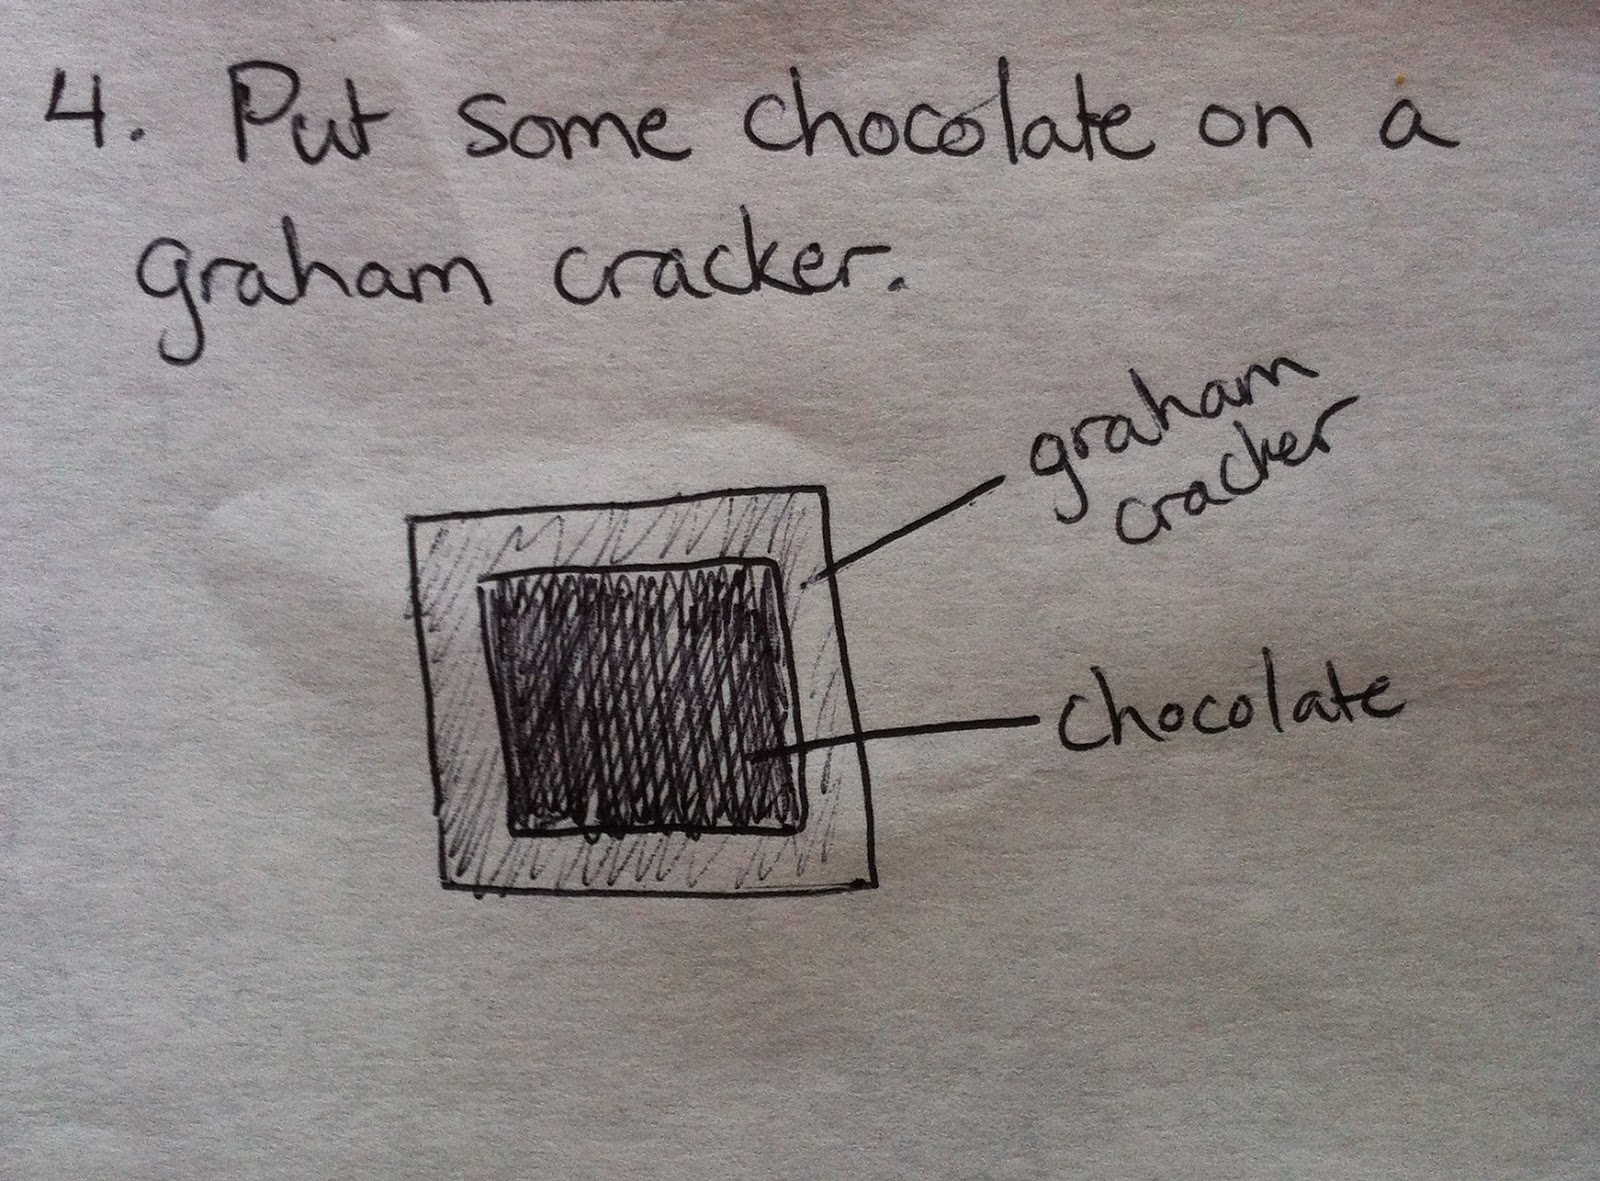 4. Put some chocolate on a
graham cracker.
graham
cracker
chocolate